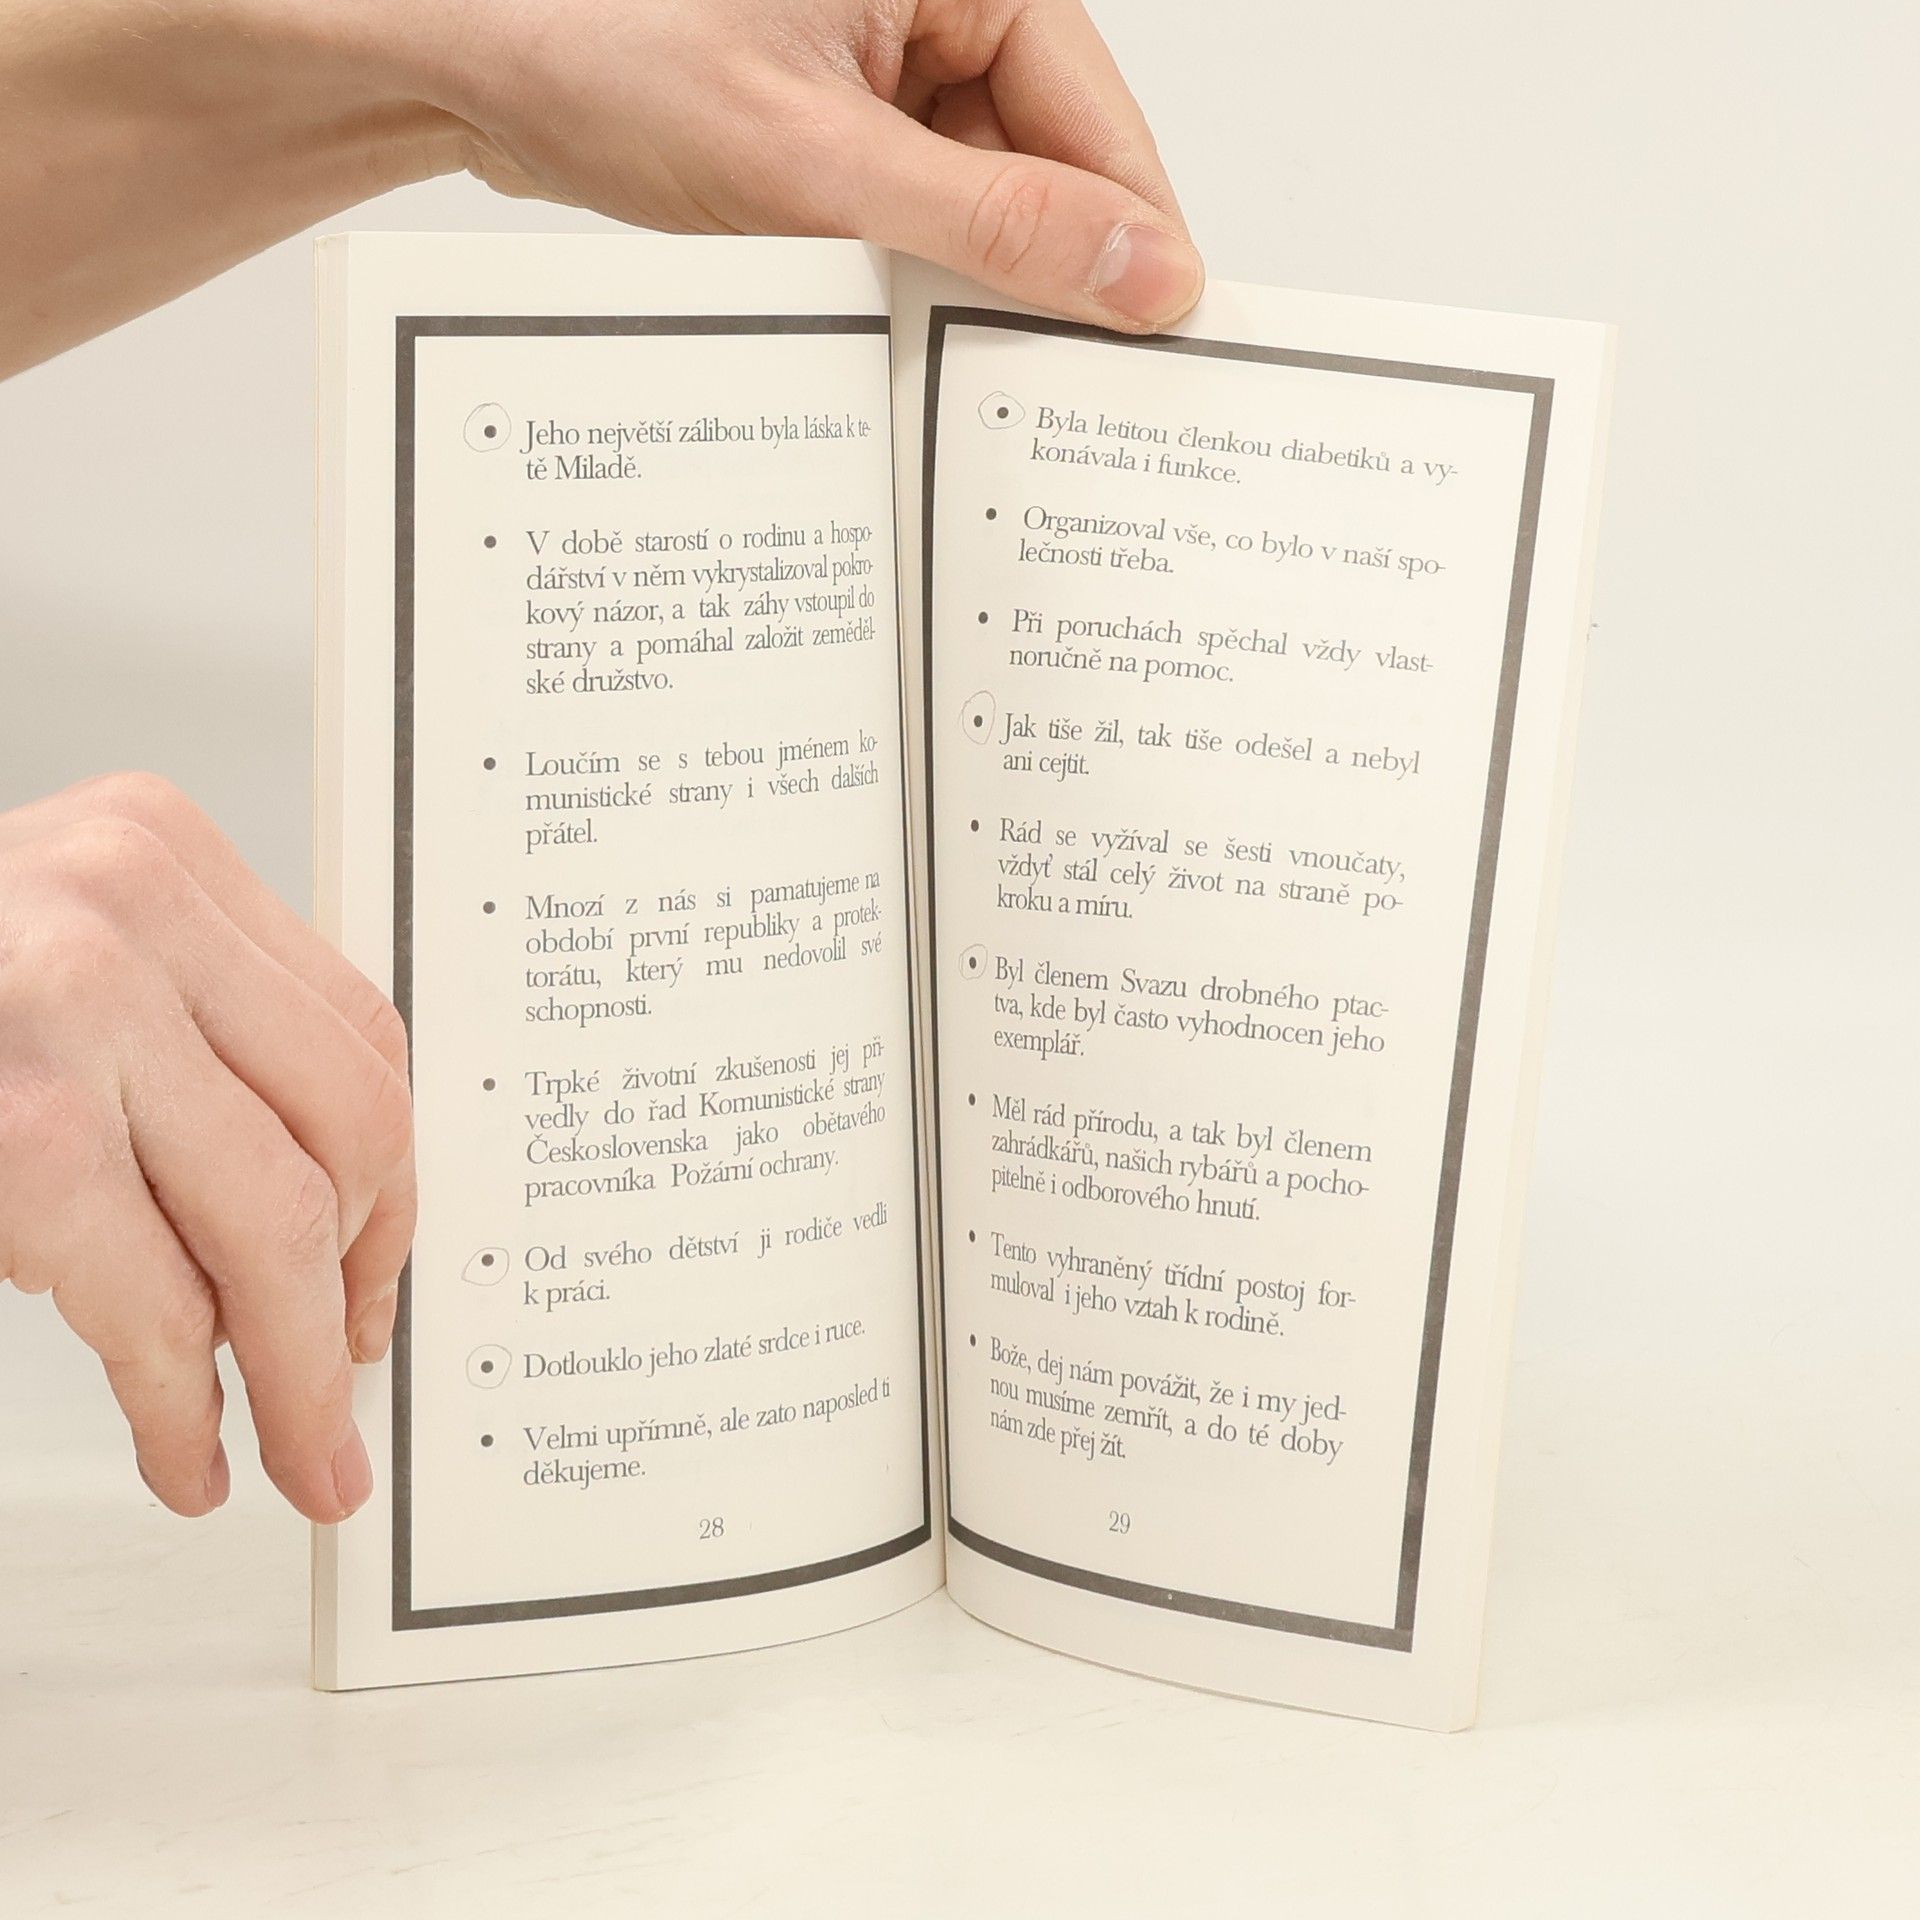 • Jeho největší zálibou byla láska k te-
tě Miladě.
• V době starostí o rodinu a hospo-
dářství v něm vykrystalizoval pokro-
kový názor, a tak záhy vstoupil do
strany a pomáhal založit zeměděl-
ské družstvo.
• Loučím se s tebou jménem ko-
munistické strany i všech dalších
přátel.
• Mnozí z nás si pamatujeme na
období první republiky a protek-
torátu, který mu nedovolil své
schopnosti.
• Trpké životní zkušenosti jej při-
vedly do řad Komunistické strany
Československa jako obětavého
pracovníka Požární ochrany.
• Od svého dětství ji rodiče vedli
k práci.
• Dotlouklo jeho zlaté srdce i ruce.
• Velmi upřímně, ale zato naposled ti
děkujeme.
28
• Byla letitou členkou diabetiků a vy-
konávala i funkce.
• Organizoval vše, co bylo v naší spo-
lečnosti třeba.
• Při poruchách spěchal vždy vlast-
noručně na pomoc.
• Jak tiše žil, tak tiše odešel a nebyl
ani cejtit.
• Rád se vyžíval se šesti vnoučaty,
vždyť stál celý život na straně po-
kroku a míru.
• Byl členem Svazu drobného ptac-
tva, kde byl často vyhodnocen jeho
exemplář.
• Měl rád přírodu, a tak byl členem
zahrádkářů, našich rybářů a pocho-
pitelně i odborového hnutí.
• Tento vyhraněný třídní postoj for-
muloval i jeho vztah k rodině.
• Bože, dej nám povážit, že i my jed-
nou musíme zemřít, a do té doby
nám zde přej žít.
29